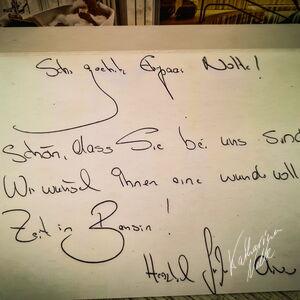 Sehr geehrtes Ehepaar Nolte!
Schön, dass Sie bei uns sind
Wir wünschen Ihnen eine wundervoll
Zeit in Bansin!
Herzlich
Katharina